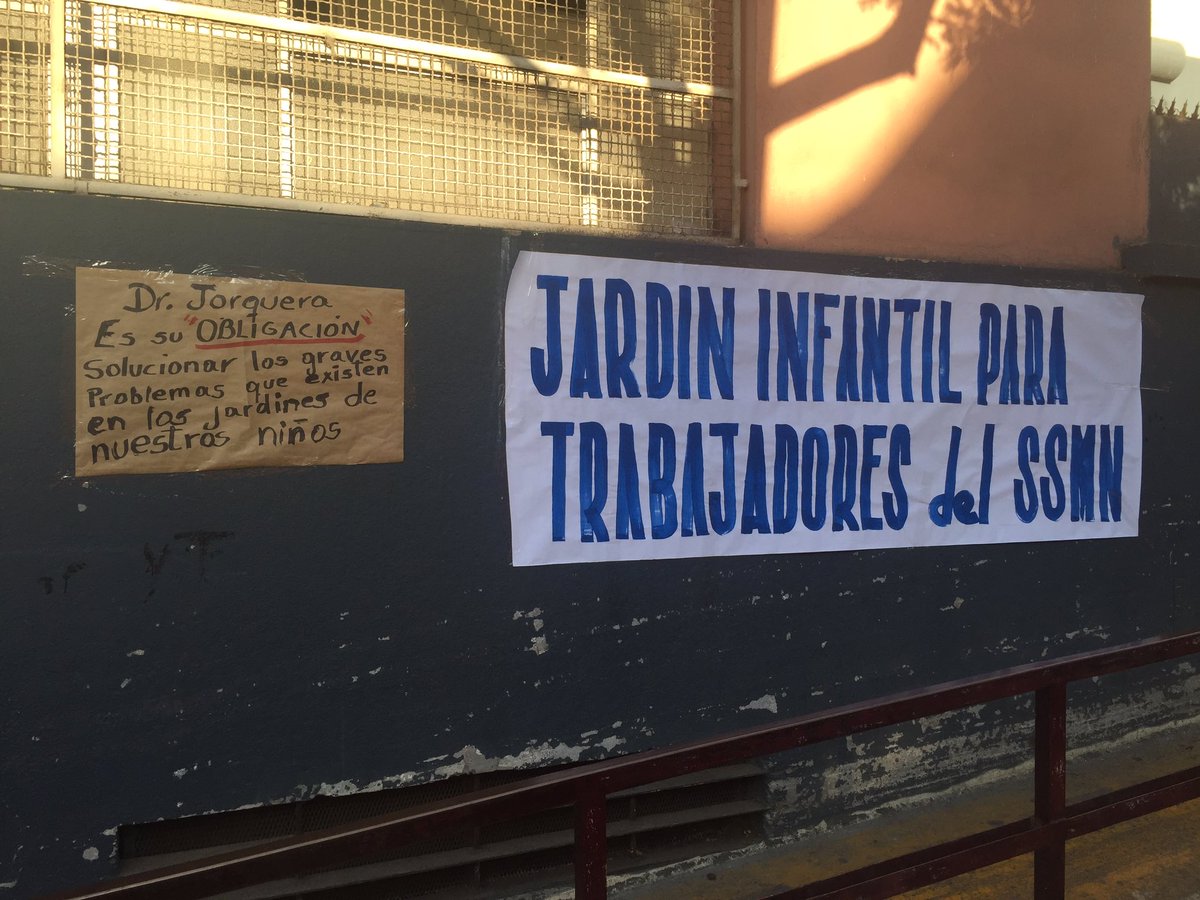 Dr. Jorquera
Es su "OBLIGACIÓN"
Solucionar los graves
Problemas que existen
en los jardines de
nuestros niños
JARDIN INFANTIL PARA
TRABAJADORES del SSMN